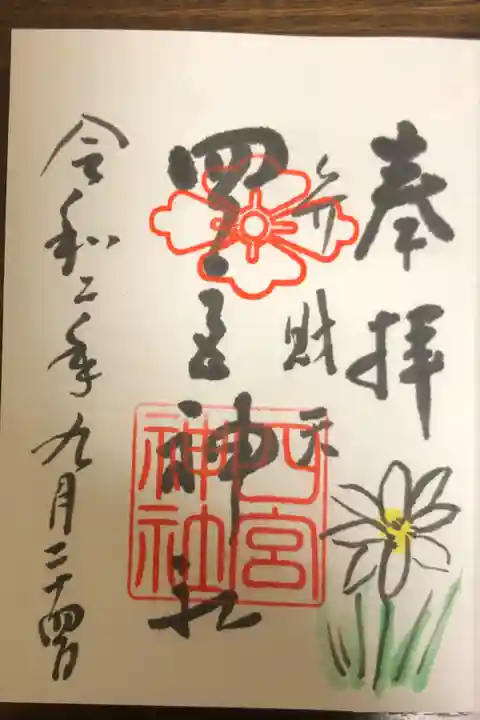 奉拝
弁財天
四宮神社
四宮神社
令和二年九月二十四日